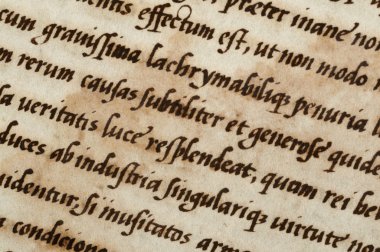 effectum est, ut non modo
cum grauissima lachrymabiliq; penuria
rerum causas subtiliter et generose quide
veritatis luce resplendeat, quam rei be
duces ab industria singulariq; virtute no
uidentur. Si inusitatos arma
condicione